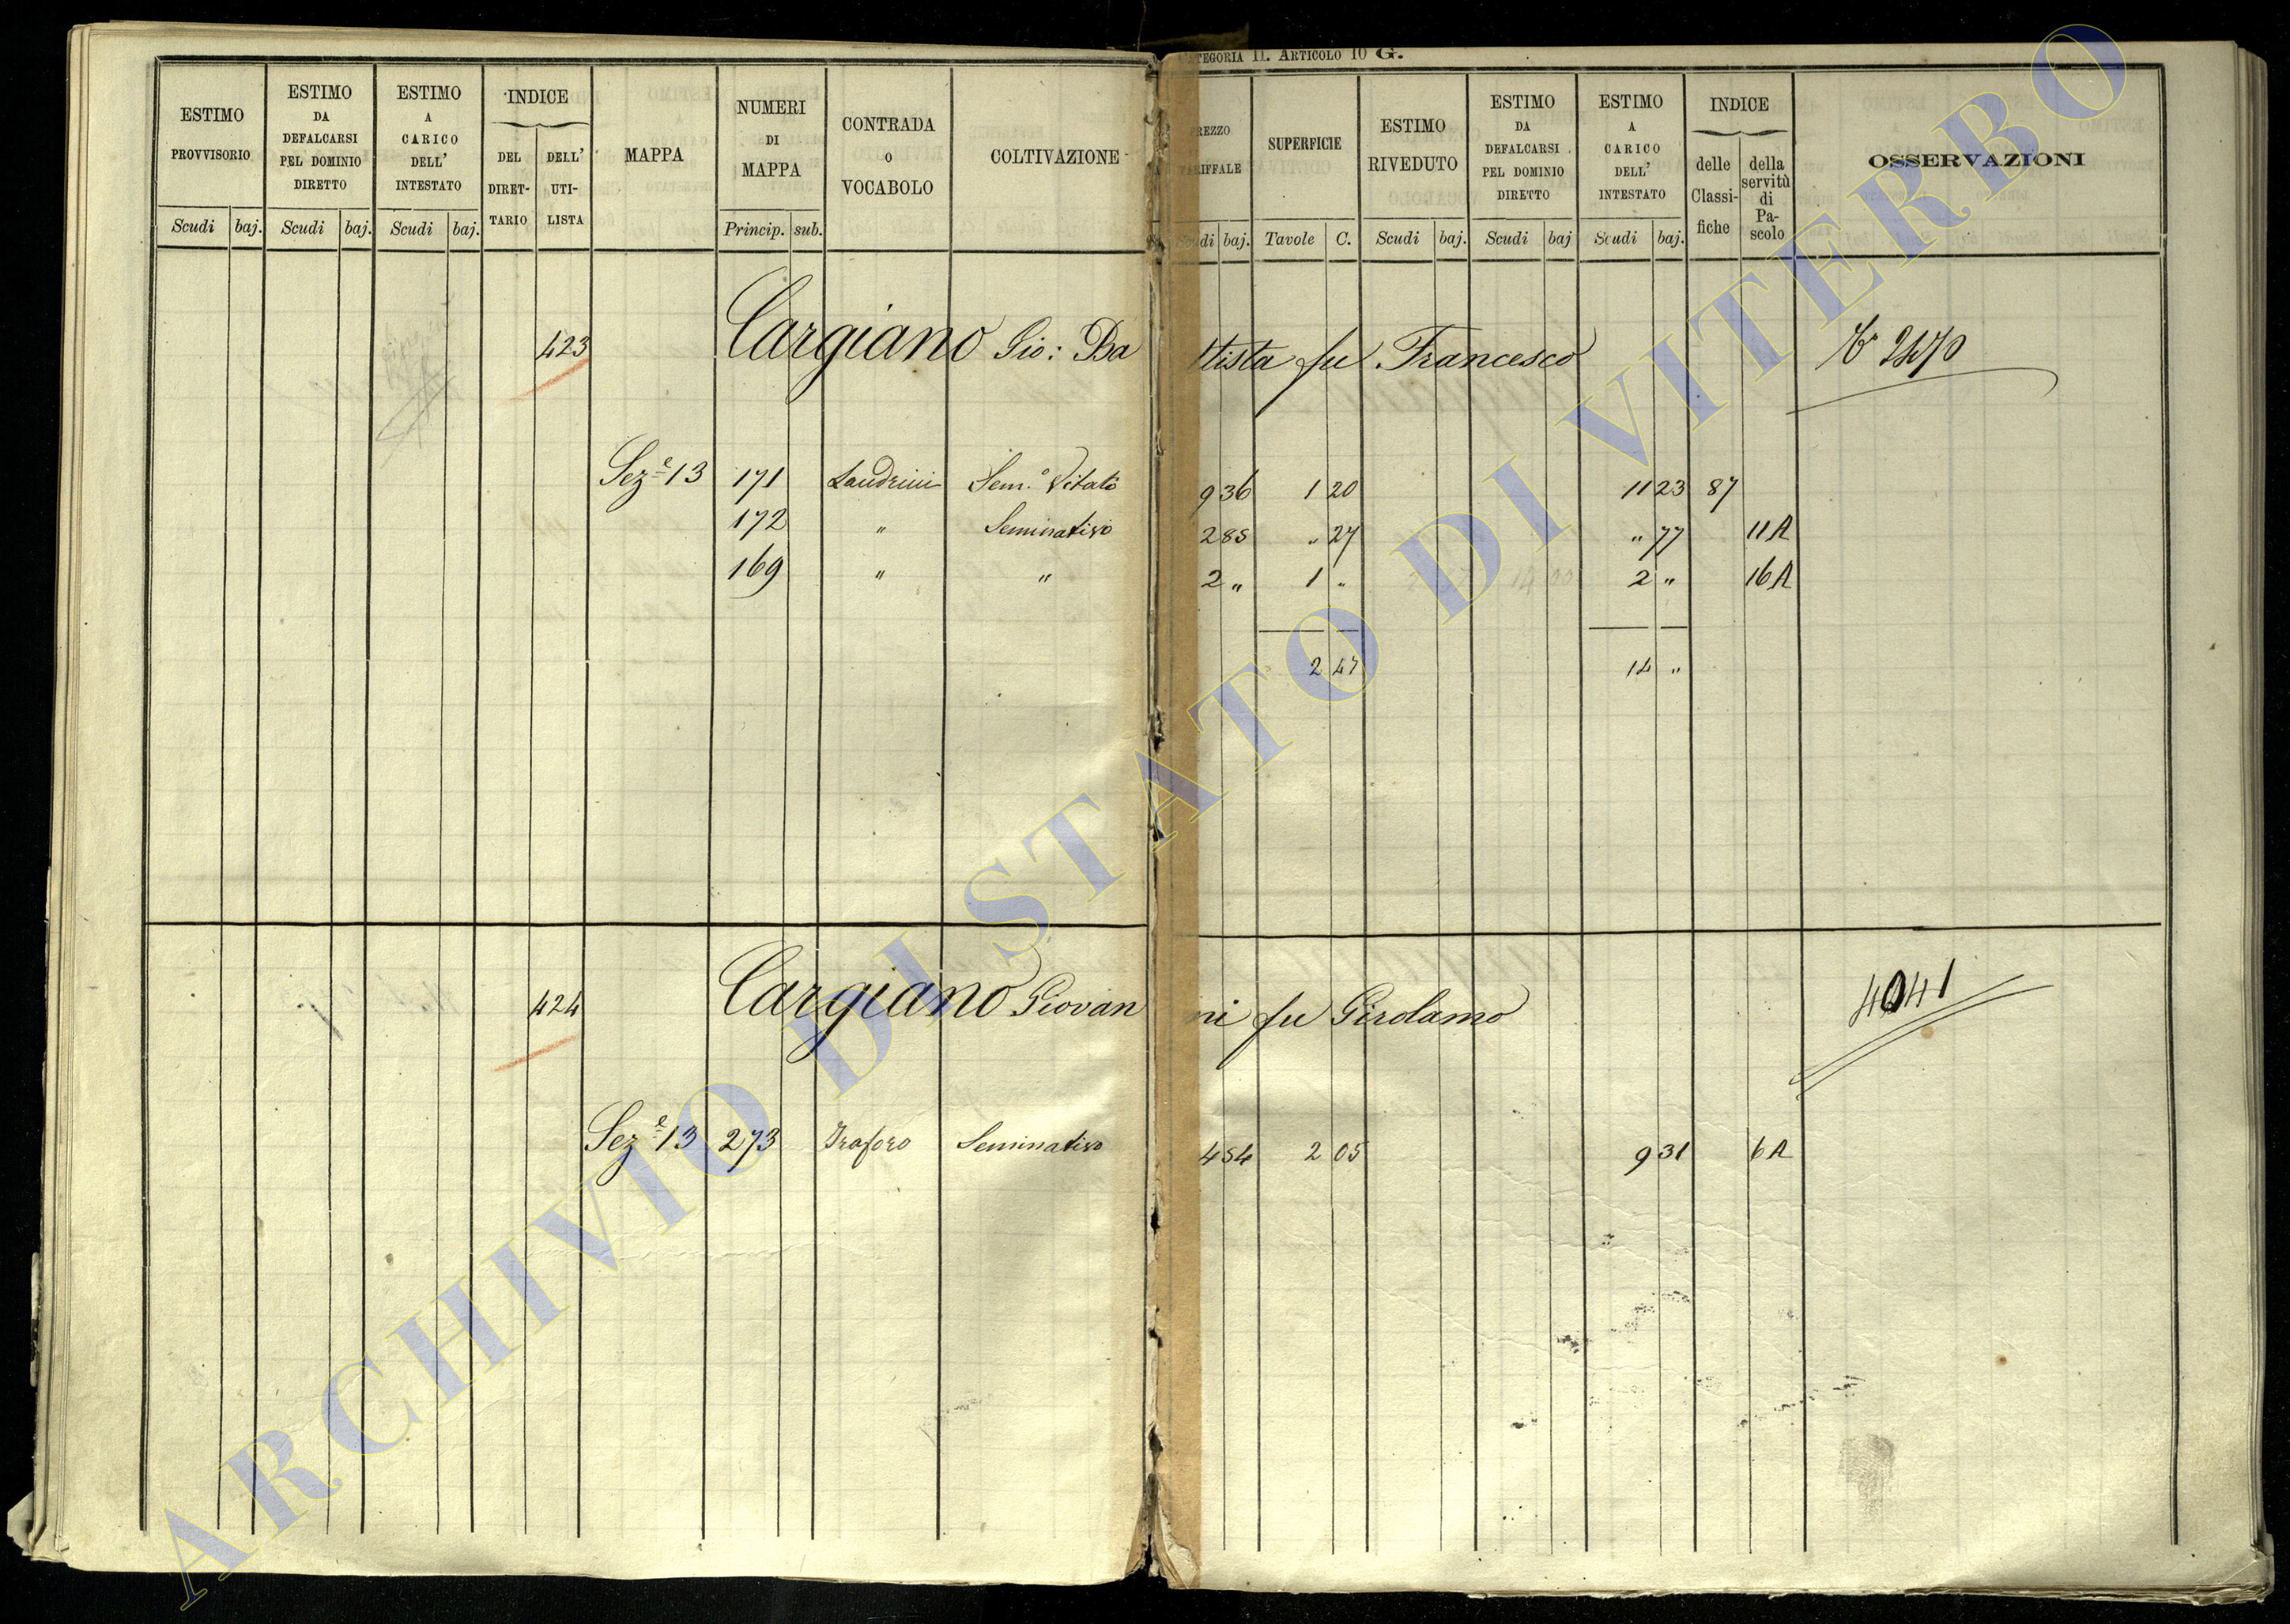 CATEGORIA II. ARTICOLO 10 G.
ESTIMO PROVVISORIO
Scudi baj.
ESTIMO DA DEFALCARSI PEL DOMINIO DIRETTO
Scudi baj.
ESTIMO A CARICO DELL' INTESTATO
Scudi baj.
INDICE
DEL DIRETTARIO
DELL' UTILISTA
MAPPA
NUMERI DI MAPPA
Princip. sub.
CONTRADA O VOCABOLO
COLTIVAZIONE
PREZZO TARIFFALE
Scudi baj.
SUPERFICIE
Tavole C.
ESTIMO RIVEDUTO
Scudi baj.
ESTIMO DA DEFALCARSI PEL DOMINIO DIRETTO
Scudi baj
ESTIMO A CARICO DELL' INTESTATO
Scudi baj.
INDICE
delle Classifiche
della servitù di Pascolo
OSSERVAZIONI
423 Cargiano Gio: Battista fu Francesco 2470
Sez.e 13 171 Landrini Sem.o Vitato 9 36 1 20 11 23 87
172 " Seminativo 2 85 " 27 " 77 11 A
169 " " 2 " 1 " 2 " 16 A
2 47 14 "
424 Cargiano Giovanni fu Girolamo 4041
Sez.e 13 273 Traforo Seminativo 4 54 2 05 9 31 6 A
ARCHIVIO DI STATO DI VITERBO